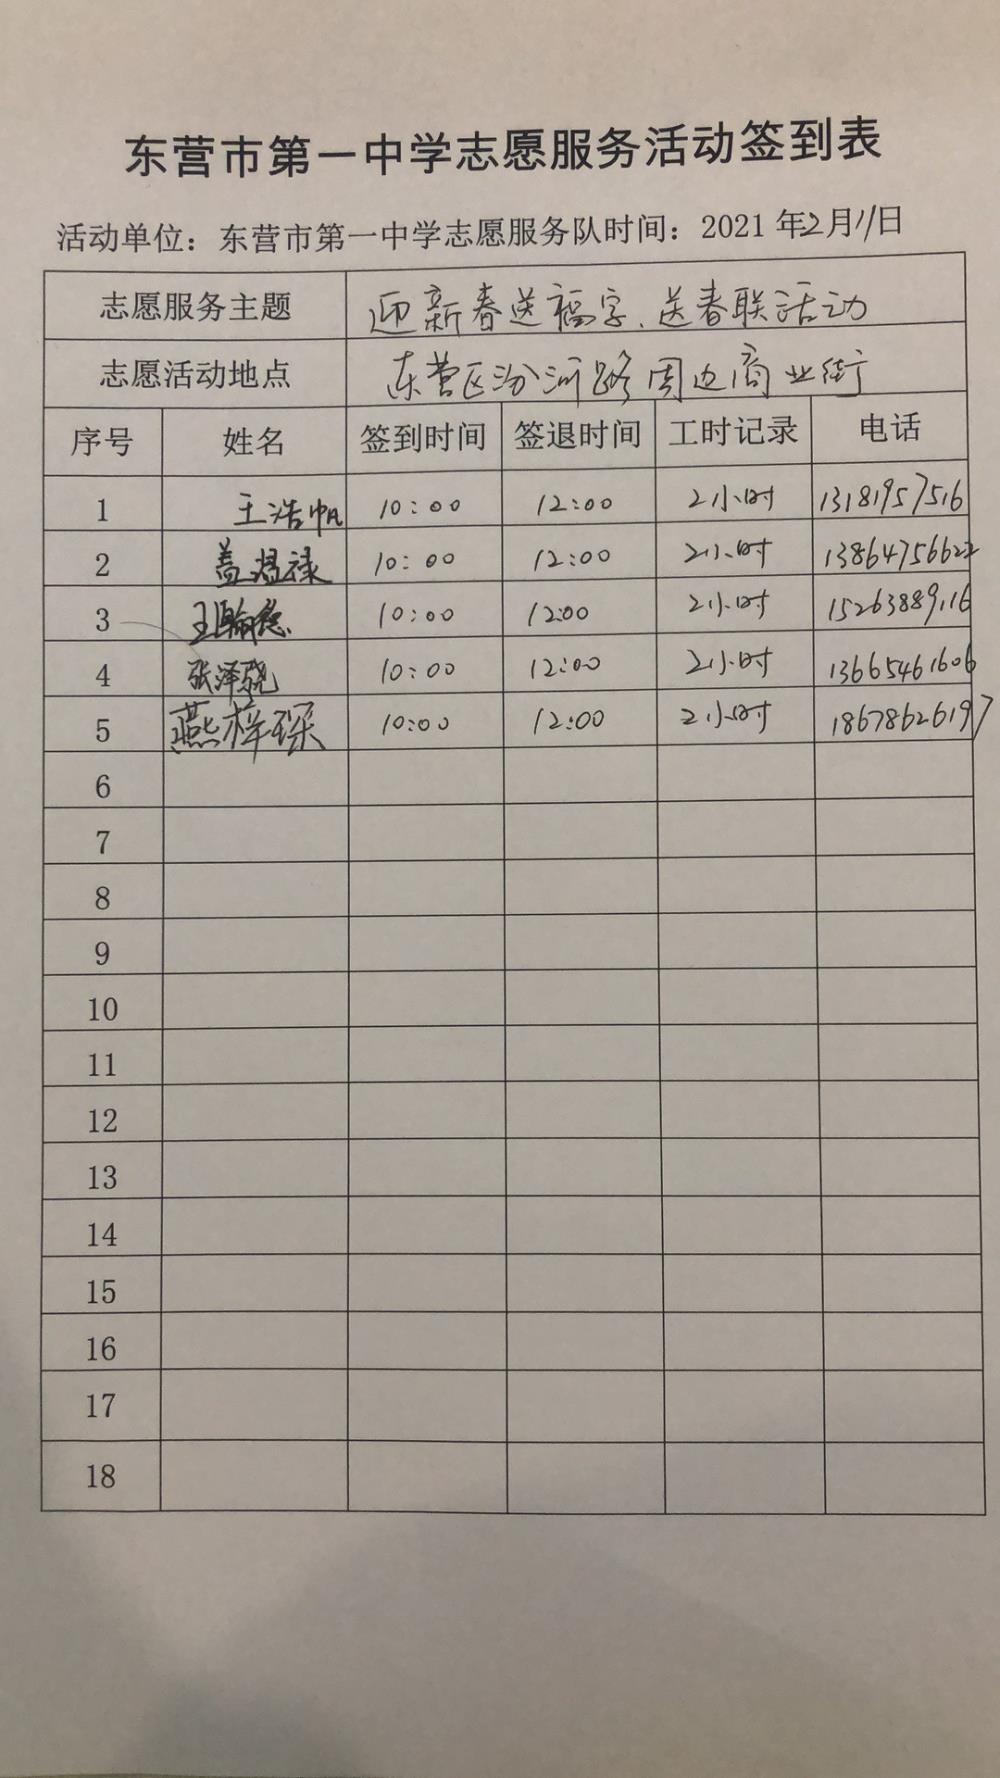 东营市第一中学志愿服务活动签到表
活动单位：东营市第一中学志愿服务队时间：2021年2月11日
志愿服务主题 迎新春送福字、送春联活动
志愿活动地点 东营区汾河路周边商业街
序号 姓名 签到时间 签退时间 工时记录 电话
1 王浩帆 10:00 12:00 2小时 13181957516
2 10:00 12:00 2小时
3 王翰德 10:00 12:00 2小时 15263889116
4 张泽骁 10:00 12:00 2小时 13665461606
5 燕梓琛 10:00 12:00 2小时 18678626197
6
7
8
9
10
11
12
13
14
15
16
17
18